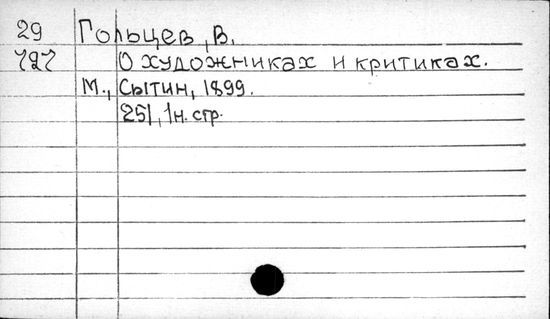 29 Гольцев, В.
727 О художниках и критиках.
М., Сытин, 1899.
251, 1 н. стр.